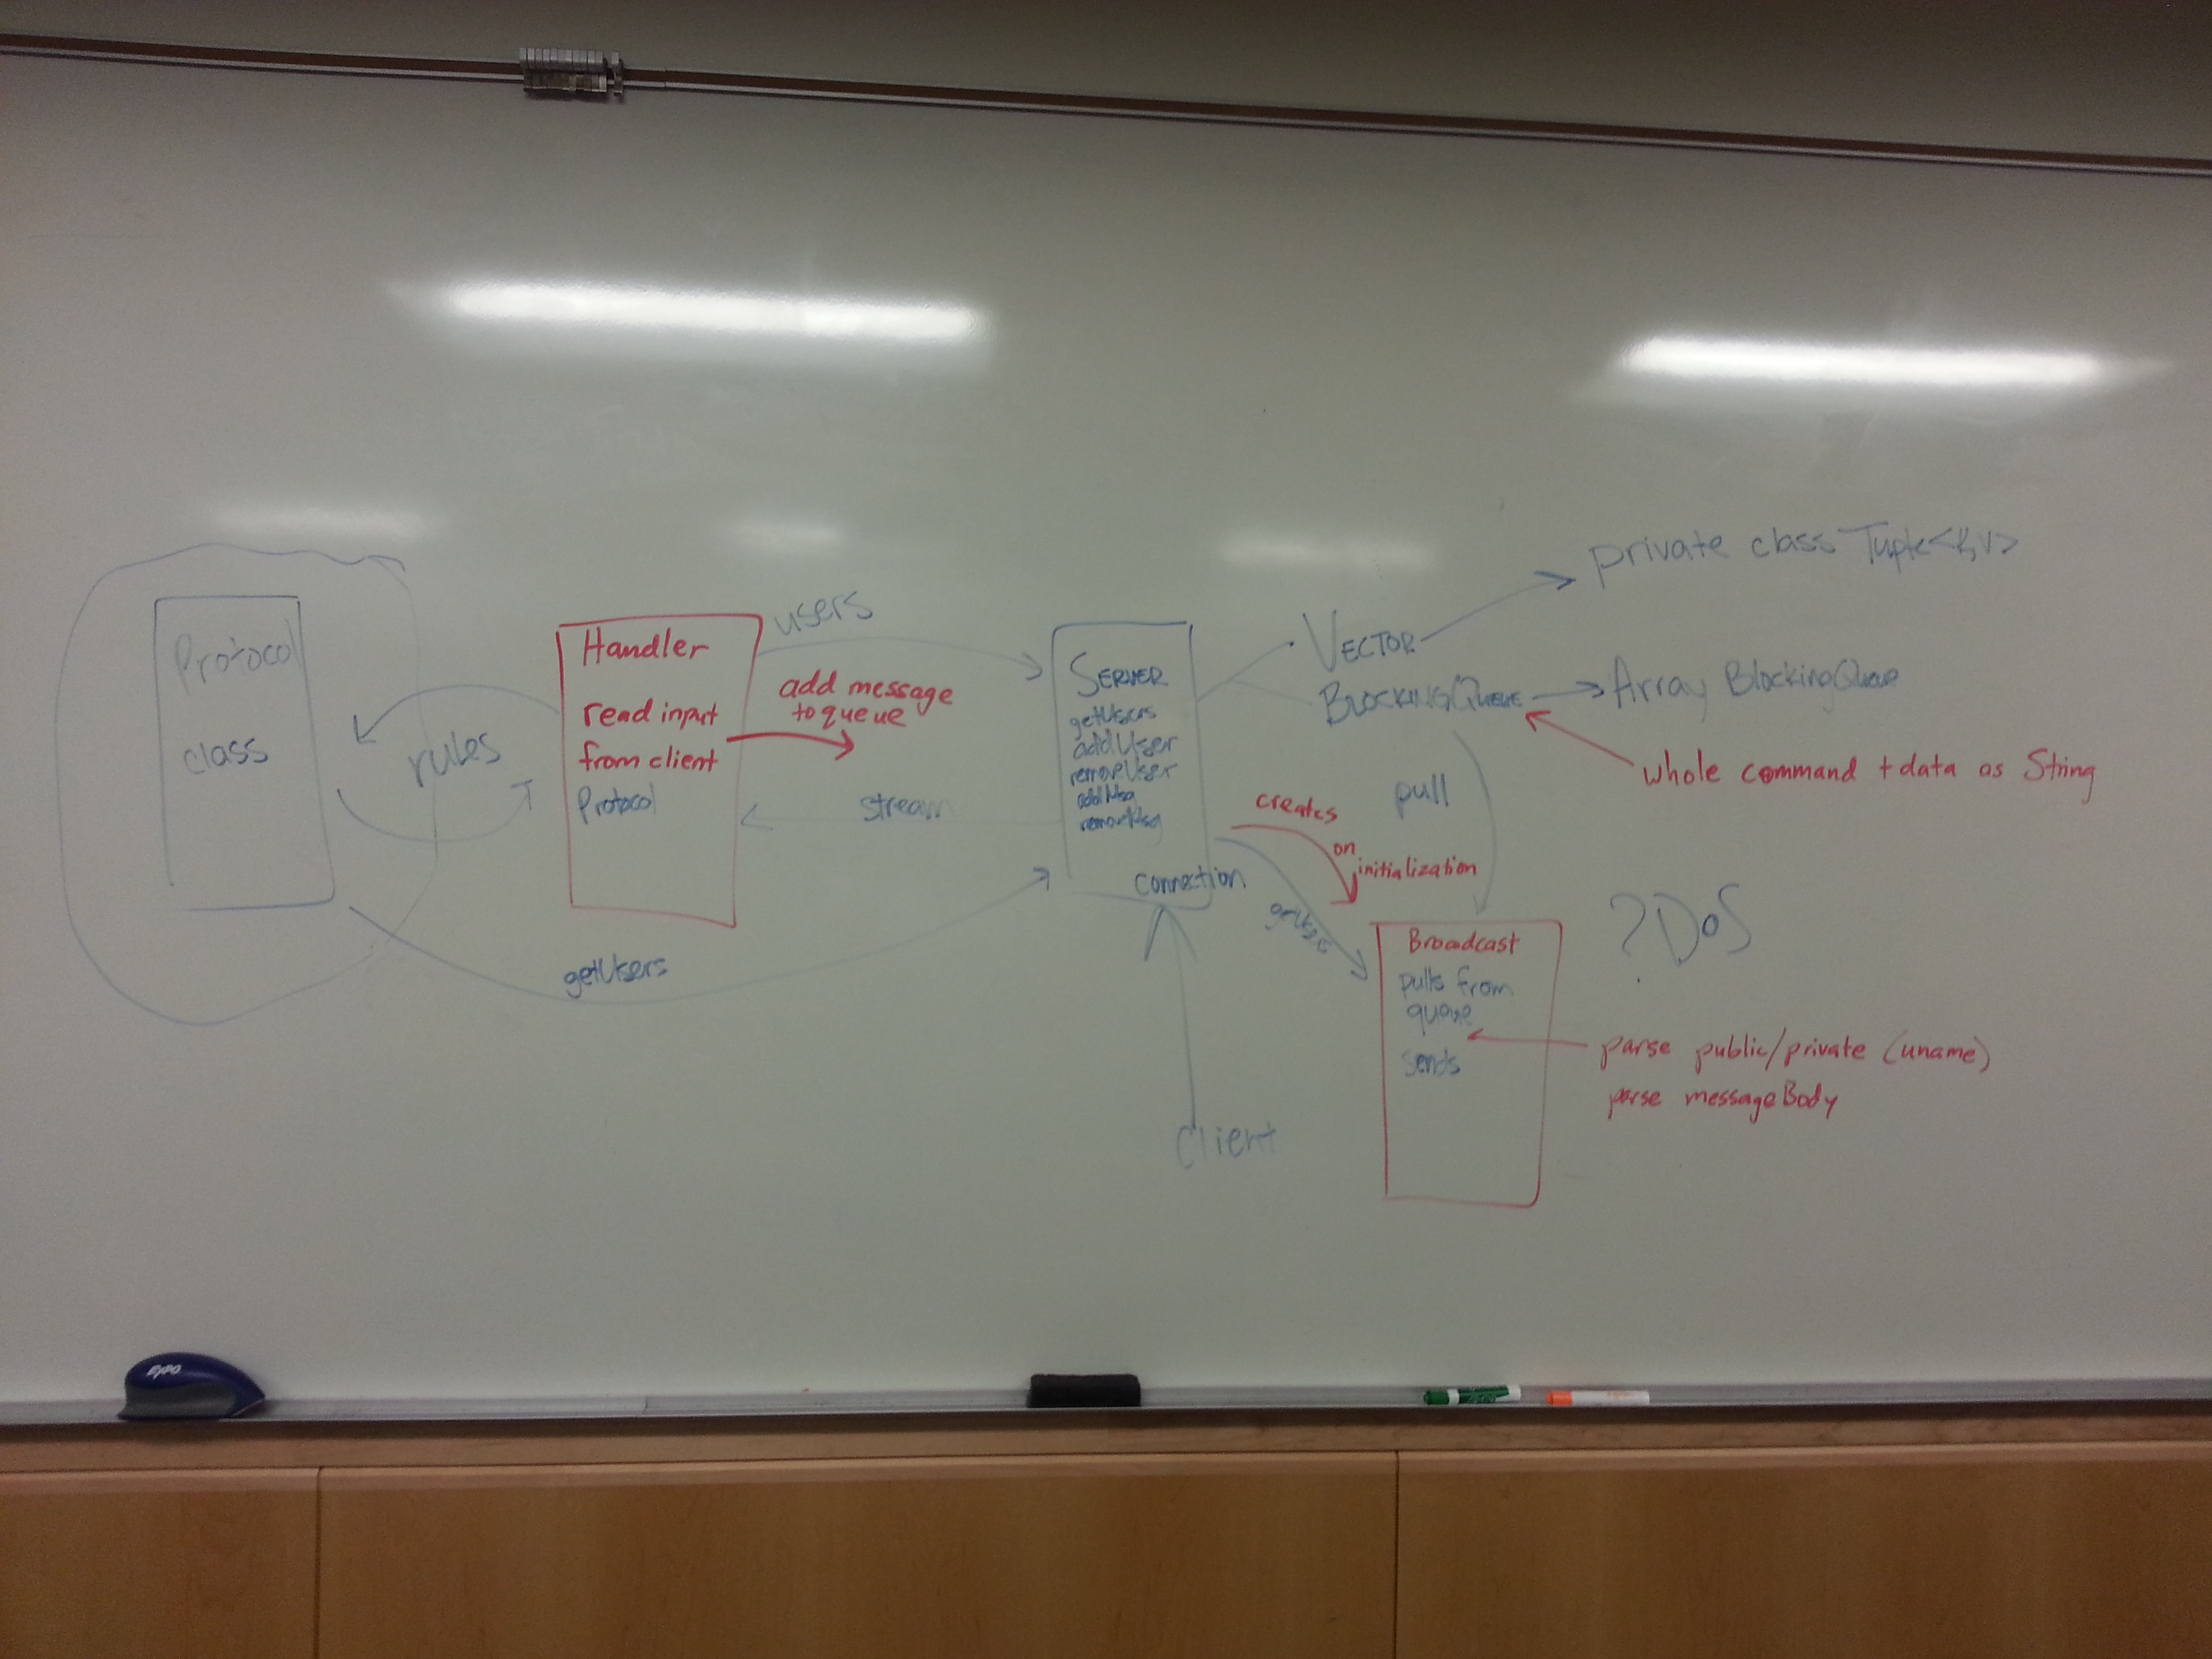 Protocol
class
rules
Handler
read input
from client
Protocol
users
add message
to queue
stream
getUsers
SERVER
getUsers
addUser
removeUser
addMsg
removeMsg
connection
Client
VECTOR
BLOCKINGQUEUE
private class Tuple
Array BlockingQueue
whole command + data as String
pull
creates
on
initialization
Broadcast
pulls from
queue
sends
?DoS
parse public/private (uname)
parse messageBody
EXPO